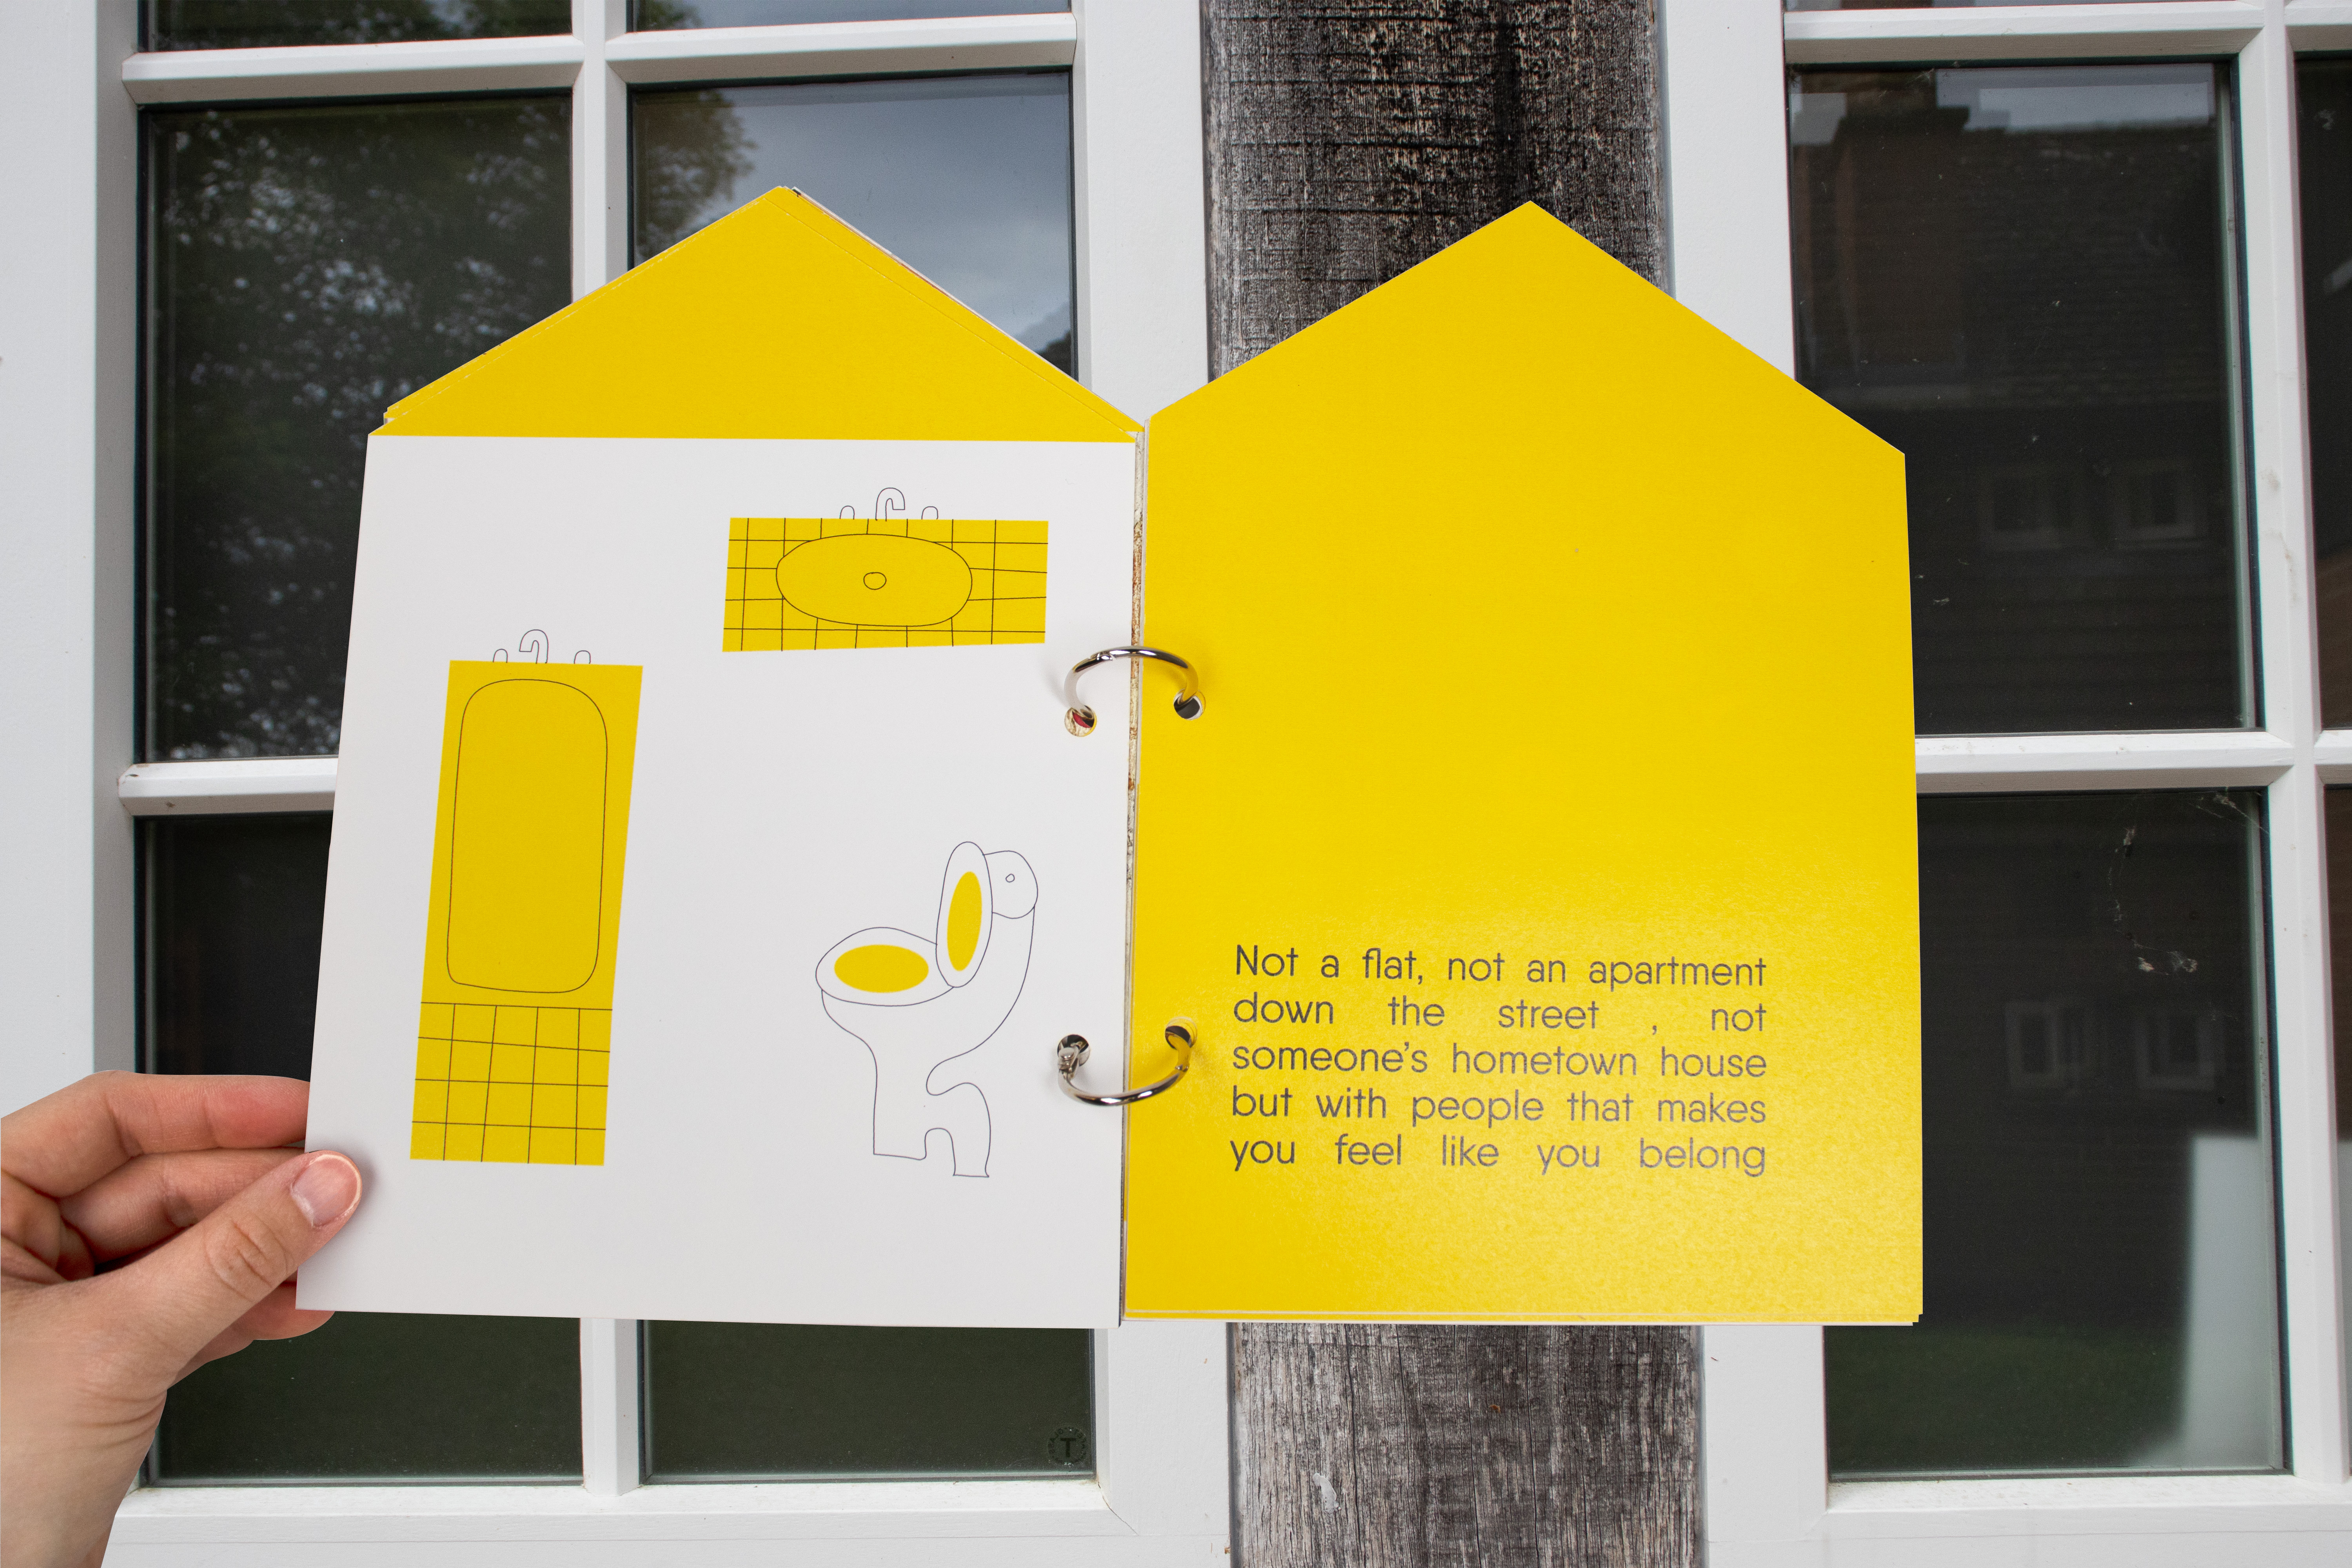 Not a flat, not an apartment
down the street , not
someone’s hometown house
but with people that makes
you feel like you belong
T